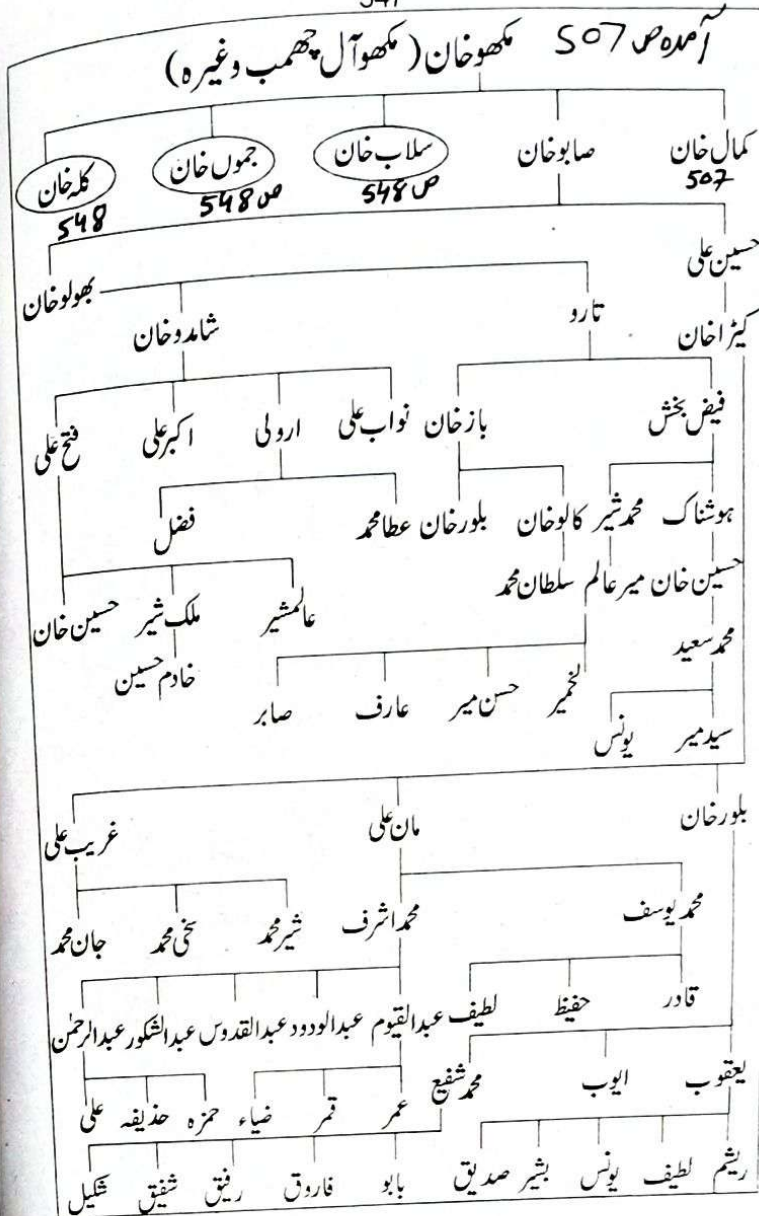 آمدہ ص 507 مکھو خان (مکھوآل چھمب وغیرہ)
کمال خان صابو خان سلاب خان جموں خان کلہ خان
507 ص 548 ص 548 548
حسین علی بھولو خان
کیڑا خان تارو شامدو خان
فیض بخش باز خان نواب علی ارولی اکبر علی فتح علی
ہوشناک محمد شیر کالو خان بلور خان عطا محمد فضل
حسین خان میر عالم سلطان محمد عالمشیر ملک شیر حسین خان
محمد سعید خادم حسین
حسن میر عارف صابر
سید میر یونس
بلور خان مان علی غریب علی
محمد یوسف محمد اشرف شیر محمد سخی محمد جان محمد
قادر حفیظ لطیف عبدالقیوم عبدالودود عبدالقدوس عبدالشکور عبدالرحمٰن
یعقوب ایوب محمد شفیع عمر قمر ضیاء حمزہ حذیفہ علی
ریشم لطیف یونس بشیر صدیق بابو فاروق رفیق شفیق شکیل